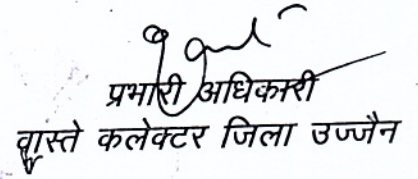 प्रभारी अधिकारी
वास्ते कलेक्टर जिला उज्जैन